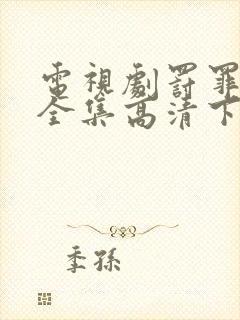 電視劇罰罪
全集高清下
季孫